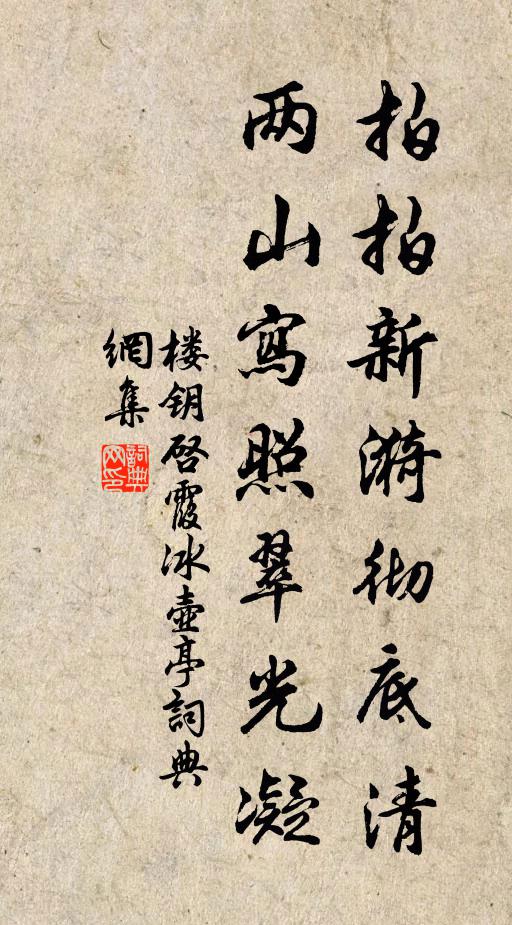 拍拍新漪彻底清
两山寫照翠光凝
楼钥啓霞冰壶亭詞典
網集
詞典
网印